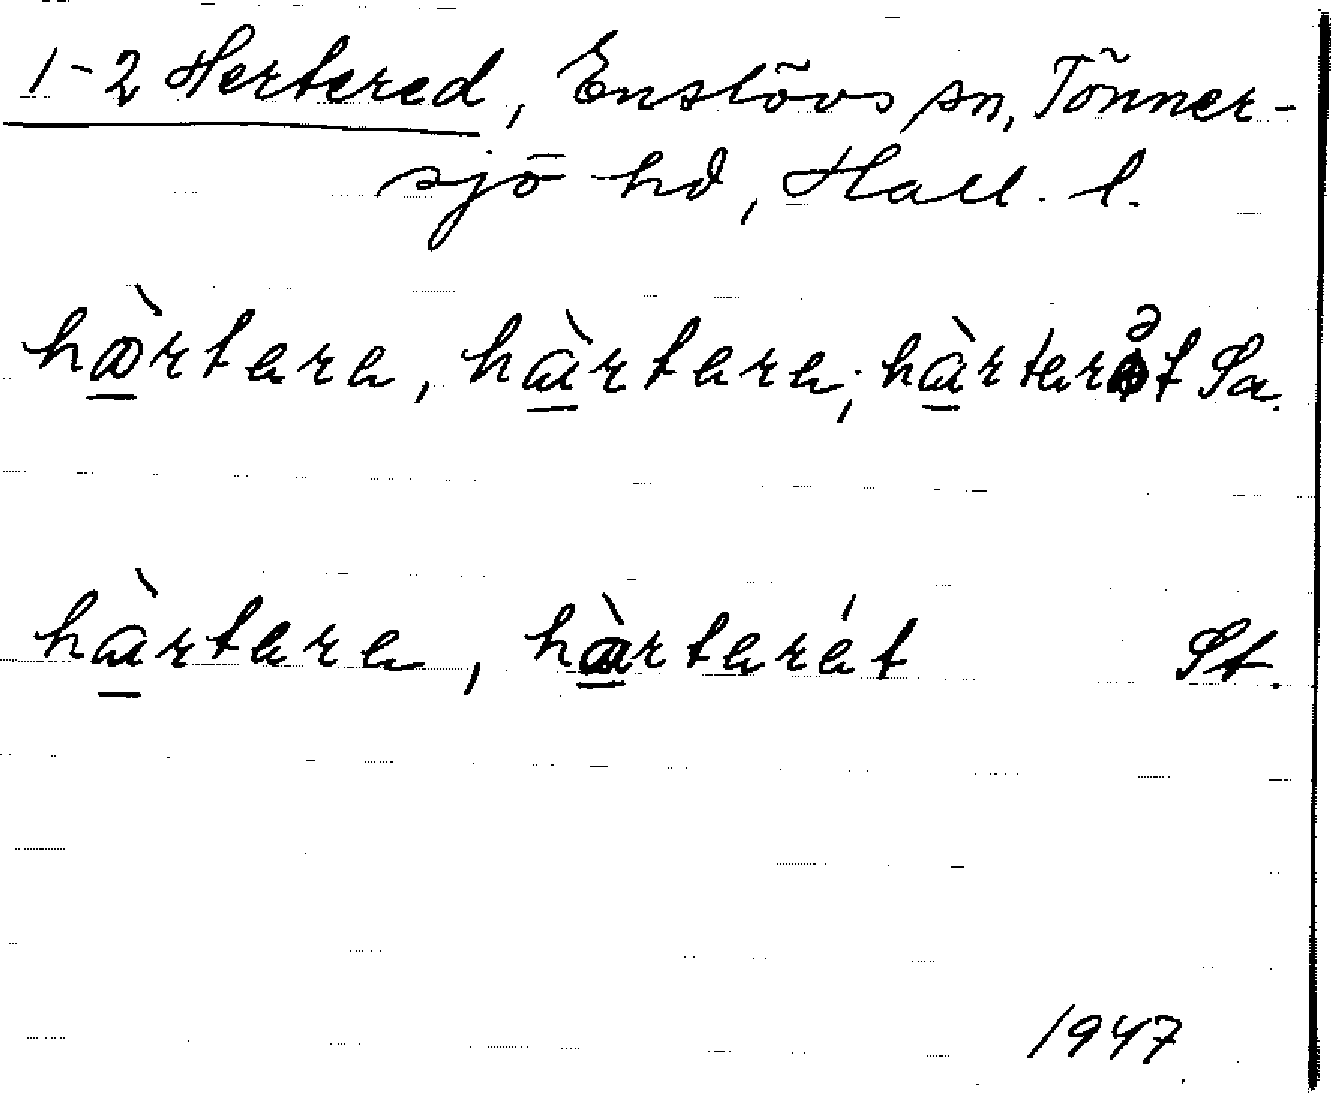 1-2 Hertered, Enslövs sn, Tönner-
sjö hd, Hall. l.
hæ̀rtara, hàrtara; hàrtarət Sa.
hàrtara, hàrtarát St.
1947